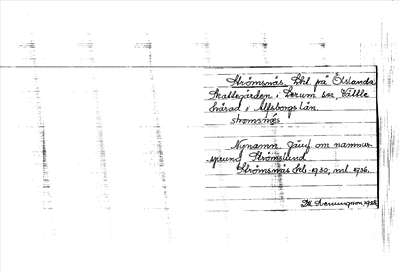 Strömsnäs, Lht. på Östanda
Skattegården i Lerum sn, Vättle
härad i Älfsborgs län.
stromsnęs
Nynamn. Jämf. om namnur-
sprung Strömslund.
Strömsnäs lht. 1930, ml. 1936.
1938